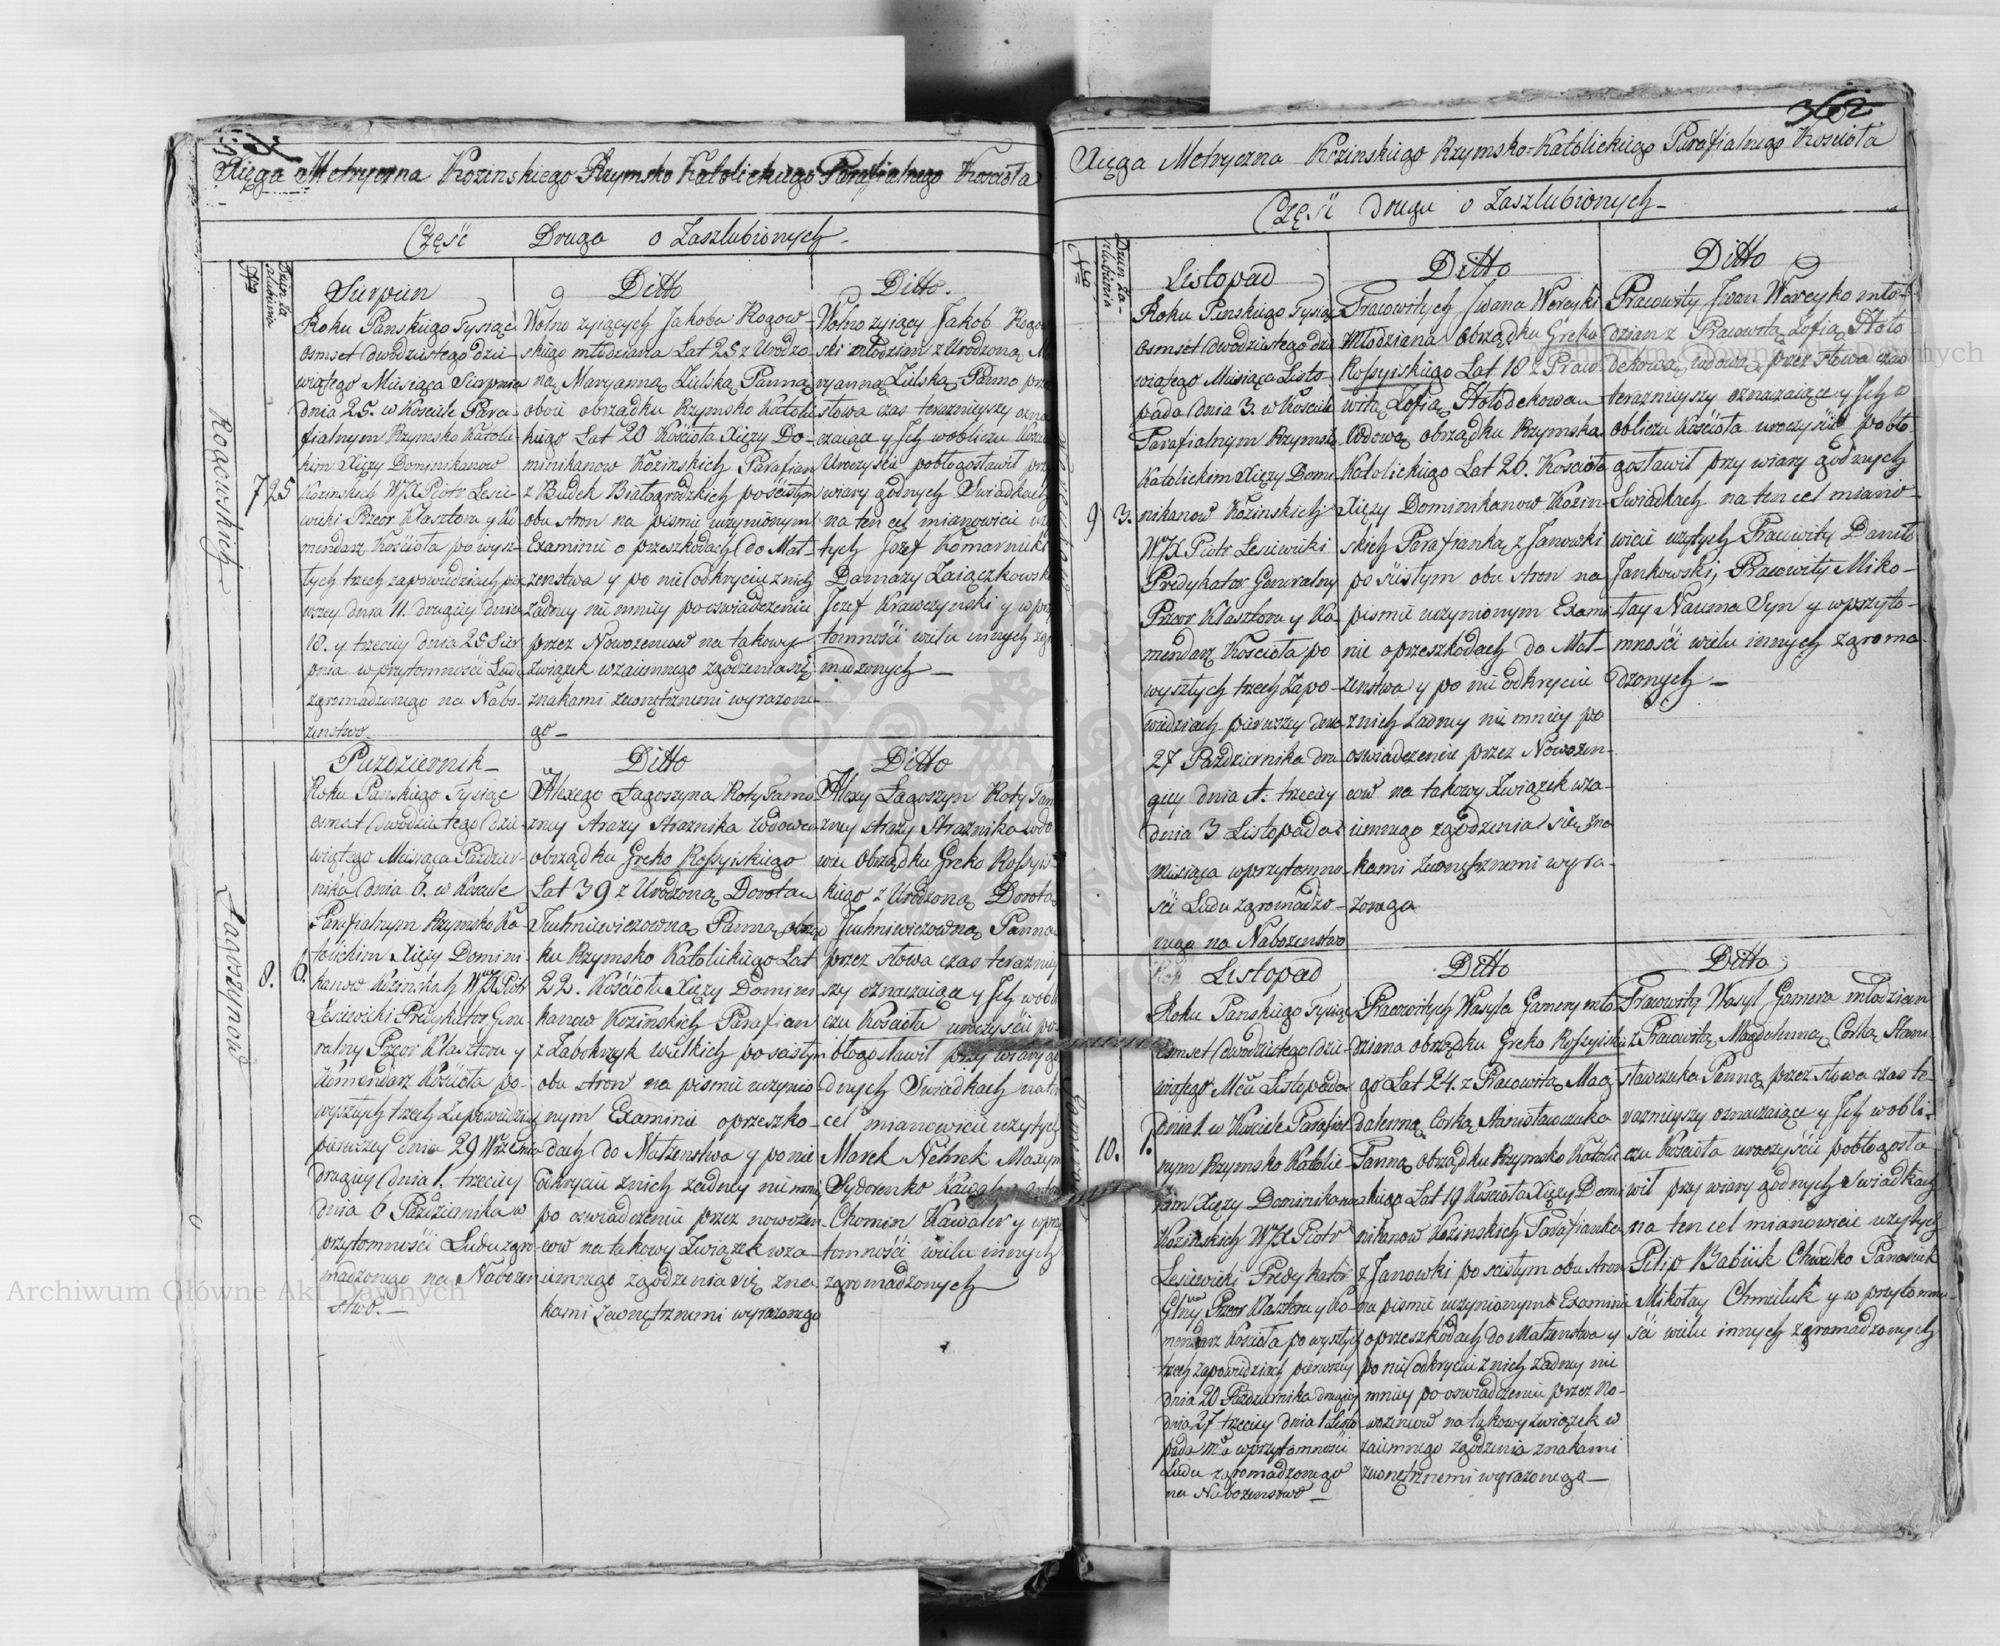 Xięga Metryczna Kozinskiego Rzymsko Katolickiego Parafialnego Kościoła
Część Druga o Zaszlubionych.
No
Dzień Za
szlubinia
Sierpień
Roku Panskiego Tysiąc
osmset dwodziestego dzie
wiątego Miesiąca Sierpnia
dnia 25. w Kościele Para-
fialnym Rzymsko Katoli
kim Xięży Dominikanow
Kozinskich WJX Piotr Lesie-
wicki Przeor Klasztora y Ko
mendarz Kościoła po wysz-
łych trzech zapowiedziach pier
wszey dnia 11. drugiey dnia
18. y trzeciey dnia 25 Sier
pnia w przytomności Ludu
zgromadzonego na Nabo-
żenstwo
Rogowskich
7
25
Ditto
Wolno żyiących Jakoba Rogow-
skiego młodziana Lat 25 z Urodzo
ną Maryanną Zielską Panną
oboie obrządku Rzymsko Katoli
kiego Lat 20 Kościoła Xięży Do-
minikanow Kozinskich Parafian
z Budek Białogrodzkich po ścisłym
obu stron na pismie uczynionym
Examinie o przeszkodach do Mał-
żenstwa y po nie odkryciu z nich
żadney nie mniey po oswiadczeniu
przez Nowożencow na takowy
Związek wzaiemnego zgodzenia się
znakami zewnętrznemi wyrażone-
go-
Ditto.
Wolno żyiący Jakob Rogow
ski młodzian z Urodzoną Ma
ryanną Zielską Panną prze
słowa czas teraznieyszy ozna
czaiące y Jch w obliczu Kościo
Uroczyscie pobłogosławił prz
wiary godnych Swiadkach
na ten cel mianowicie uży
tych Jozef Komarnicki
Damazy Zaiączkowsk
Jozef Krawczynski y w prz
tomności wielu innych zgr
madzonych-
Październik-
Roku Panskiego Tysiąc
osmset dwodziestego dzie
wiątego Miesiąca Paździer-
nika dnia 6. w Kościele
Parafialnym Rzymsko Ka
tolickim Xięży Domini-
kanow Kozinskich WJX Piotr
Lesiewicki Predykator Gene
ralny Przeor Klasztora y
Komendarz Kościoła po-
wyszłych trzech Zapowiedziach
pierwszey dnia 29 Września
drugiey dnia 1. trzeciey
dnia 6 Października w
przytomności Ludu zgro-
madzonego na Nabożen
stwo.-
Łagoszynow
8.
6.
Ditto
Alexego Łagoszyna Roty Tamo
żney Straży Strażnika Wdowca
obrządku Greko Rossyiskiego
Lat 39 z Urodzoną Dorotą
Juchniewiczowną Panną obrząd
ku Rzymsko Katolickiego Lat
22. Kościoła Xięży Domini
kanow Kozinskich Parafian
z Zabokrzyk wielkich po scisłym
obu stron na pismie uczynio
nym Examinie o przeszko-
dach do Małżenstwa y po nie
odkryciu z nich żadney nie mniey
po oswiadczeniu przez nowożen
cow na takowy Związek wza-
iemnego zgodzenia się zna
kami zewnętrznemi wyrażonego
Ditto
Alexy Łagoszyn Roty Tam
żney straży Strażnika wdo
wiec Obrządku Greko Rossyis
kiego z Urodzoną Dorotą
Juchniewiczowną Panną
przez słowa czas teraźniey
szy oznaczaiące y Jch w obli
czu Kościoła uroczyście po-
błogosławił przy wiary go
dnych Swiadkach na ten
cel mianowicie użytych
Marek Nehrek Maxym
Sydorenko Kawaler
Chomin Kawaler y w przy
tomności wielu innych
zgromadzonych
362
Xięga Metryczna Kozinskiego Rzymsko-Katolickiego Parafialnego Kościoła
Część druga o Zaszlubionych-
No
Dzień Za-
szlubinia
Listopad
Roku Panskiego Tysiąc
osmset dwodziestego dzie
wiątego Miesiąca Listo-
pada dnia 3. w Kościele
Parafialnym Rzymsko
Katolickim Xięży Domi
nikanow Kozinskich
WJX Piotr Lesiewicki
Predykator Generalny
Przeor Klasztora y Ko-
mendarz Kościoła po
wyszłych trzech Zapo-
wiedziach pierwszey dnia
27 Października dru
giey dnia 1. trzeciey
dnia 3 Listopada
miesiąca w przytomno-
ści Ludu zgromadzo-
nego na Nabożenstwo
9)
3.
Ditto
Pracowitych Jwana Wereyki
Młodziana obrządku Greko
Rossyiskiego Lat 18 z Praco
witą Zofią Hołodekową
Wdową obrządku Rzymsko
Katolickiego Lat 26. Kościoła
Xięży Dominikanow Kozin-
skich Parafianką z Janowki
po ścisłym obu stron na
pismie uczynionym Exami
nie o przeszkodach do Mał-
żenstwa y po nie odkryciu
z nich żadney nie mniey po
oswiadczeniu przez Nowożen-
cow na takowy Związek wza-
iemnego zgodzenia się zna
kami zewnętrznemi wyra-
żonego
Ditto
Pracowity Jwan Wereyko mło-
dzian z Pracowitą Zofią Hoło
dekową wdową przez słowa czas
teraznieyszy oznaczaiące y Jch w
obliczu Kościoła uroczyście pobło
gosławił przy wiary godnych
Swiadkach na ten cel miano-
wicie użytych Pracowity Daniło
Jankowski, Pracowity Miko-
łay Nauma Syn y w przyto-
mności wielu innych zgroma
dzonych-
Listopad
Roku Panskiego Tysiąc
osmset dwodziestego dzie
wiątego Mca Listopada
dnia 1. w Kościele Parafial
nym Rzymsko Katolic
kim Xięży Dominikanow
Kozinskich WJX Piotr
Lesiewicki Predykator
Glny Przeor Klasztora y Ko-
mendarz Kościoła po wyszłych
trzech zapowiedziach pierwszey
dnia 20 Października drugiey
dnia 27 trzeciey dnia 1 Listo
pada Mca w przytomności
Ludu zgromadzonego
na Nabożenstwo-
10.
1.
Ditto
Pracowitych Wasyla Gamery mło
dziana obrządku Greko Rossyiskie
go Lat 24. z Pracowitą Mag
daleną Corką Stanisławczuka
Panną obrządku Rzymsko Katoli
ckiego Lat 19 Kościoła Xięży Domi
nikanow Kozinskich Parafianką
z Janowki po scisłym obu stron
na pismie uczynionym Examinie
o przeszkodach do Małżenstwa y
po nie odkryciu z nich żadney nie
mniey po oswiadczeniu przez No-
wożencow na takowy związek w
zaiemnego zgodzenia znakami
zewnętrznemi wyrażonego-
Ditto
Pracowity Wasyl Gamera młodzian
z Pracowitą Magdaleną Corką Stani-
sławczuka Panną przez słowa czas te-
raznieyszy oznaczaiące y Jch w obli-
czu Kościoła uroczyście pobłogosła
wił przy wiary godnych Swiadkach
na ten cel mianowicie użytych
Pilip Babiiuk Chwedko Panasiuk
Mikołay Chmiluk y w przytomno
ści wielu innych zgromadzonych
Archiwum Główne Akt Dawnych
Archiwum Główne Akt Dawnych